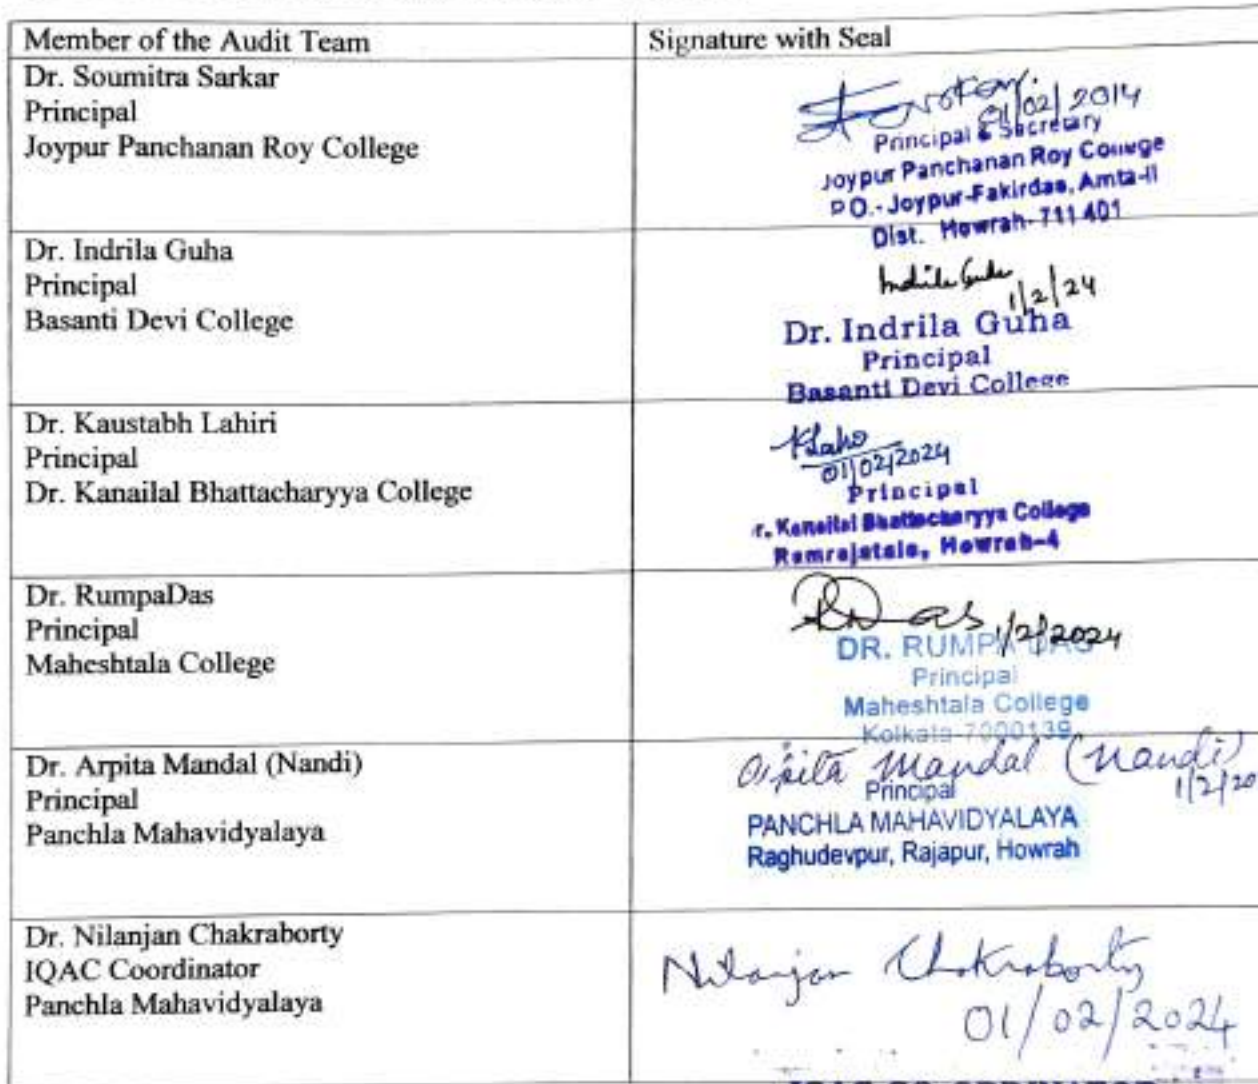 Member of the Audit Team
Signature with Seal
Dr. Soumitra Sarkar
Principal
Joypur Panchanan Roy College
01/02/2014
Principal & Secretary
Joypur Panchanan Roy College
P.O.-Joypur-Fakirdas, Amta-II
Dist. Howrah-711 401
Dr. Indrila Guha
Principal
Basanti Devi College
Indrila Guha
1/2/24
Dr. Indrila Guha
Principal
Basanti Devi College
Dr. Kaustabh Lahiri
Principal
Dr. Kanailal Bhattacharyya College
01/02/2024
Principal
r. Kanailal Bhattacharyya College
Ramrajatala, Howrah-4
Dr. RumpaDas
Principal
Maheshtala College
RDas 1/2/2024
DR. RUMPA DAS
Principal
Maheshtala College
Kolkata-7000139
Dr. Arpita Mandal (Nandi)
Principal
Panchla Mahavidyalaya
Arpita Mandal (Nandi)
1/2/20
Principal
PANCHLA MAHAVIDYALAYA
Raghudevpur, Rajapur, Howrah
Dr. Nilanjan Chakraborty
IQAC Coordinator
Panchla Mahavidyalaya
Nilanjan Chakraborty
01/02/2024